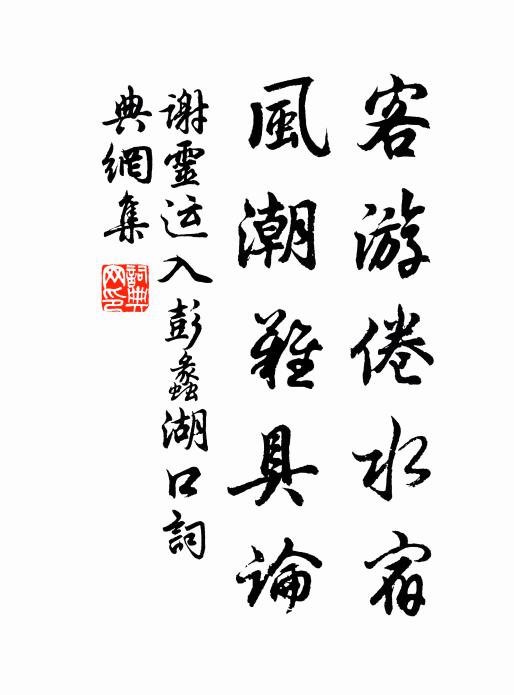 客游倦水宿
風潮難具論
謝靈运入彭蠡湖口詞
典網集
詞典网印